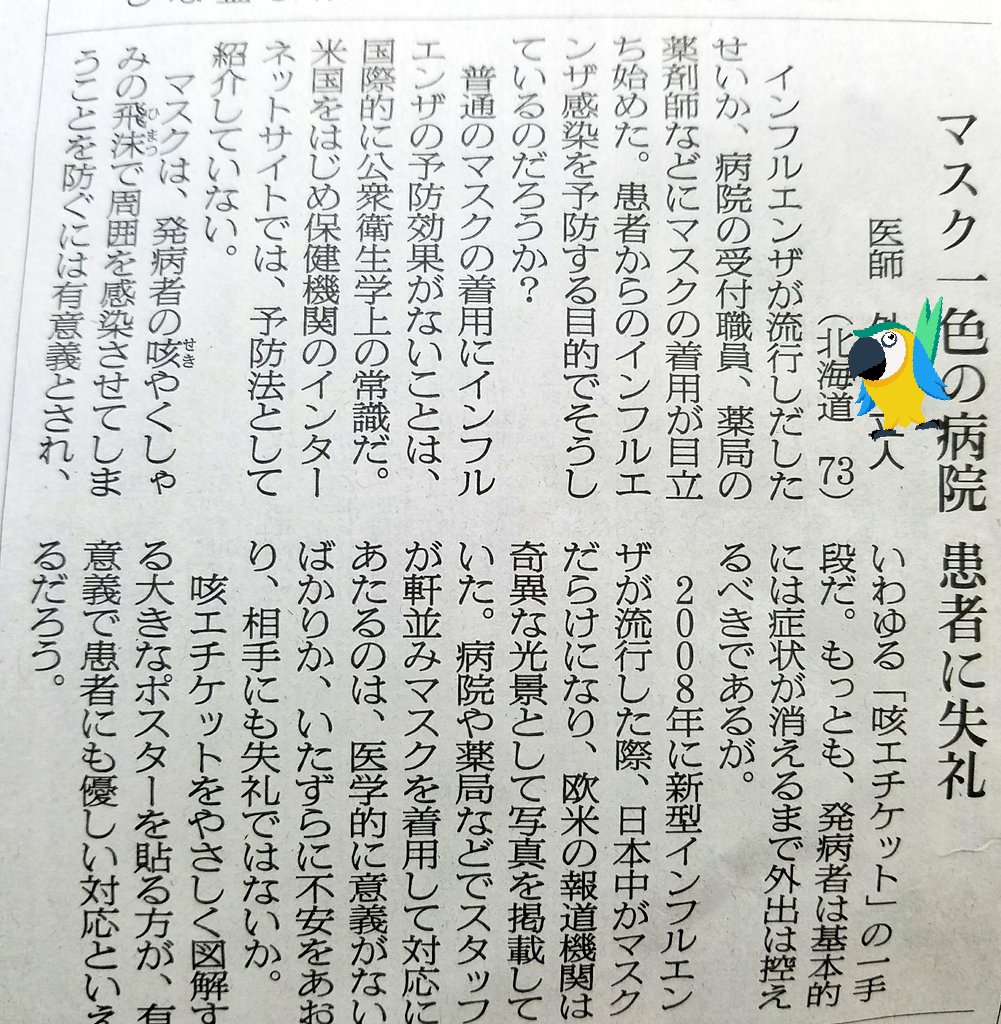 マスク一色の病院 患者に失礼
医師
人
(北海道 73)
インフルエンザが流行しだした
せいか、病院の受付職員、薬局の
薬剤師などにマスクの着用が目立
ち始めた。患者からのインフルエ
ンザ感染を予防する目的でそうし
ているのだろうか?
普通のマスクの着用にインフル
エンザの予防効果がないことは、
国際的に公衆衛生学上の常識だ。
米国をはじめ保健機関のインター
ネットサイトでは、予防法として
紹介していない。
マスクは、発病者の咳やくしゃ
みの飛沫で周囲を感染させてしま
うことを防ぐには有意義とされ、
いわゆる「咳エチケット」の一手
段だ。もっとも、発病者は基本的
には症状が消えるまで外出は控え
るべきであるが。
2008年に新型インフルエン
ザが流行した際、日本中がマスク
だらけになり、欧米の報道機関は
奇異な光景として写真を掲載して
いた。病院や薬局などでスタッフ
が軒並みマスクを着用して対応に
あたるのは、医学的に意義がない
ばかりか、いたずらに不安をあお
り、相手にも失礼ではないか。
咳エチケットをやさしく図解す
る大きなポスターを貼る方が、有
意義で患者にも優しい対応といえ
るだろう。